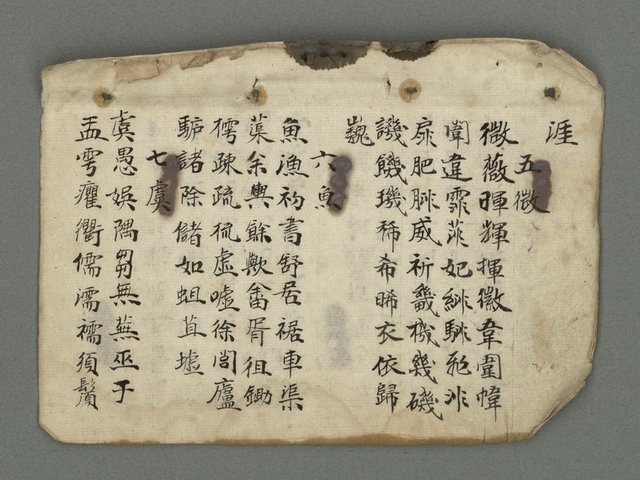 涯
五微
微薇暉輝揮徽韋圍幃
闈違霏菲妃緋騑飛非
扉肥腓威祈畿機幾磯
譏饑璣稀希晞衣依歸
巍
六魚
魚漁初書舒居裾車渠
蕖余輿餘歟畬胥徂鋤
樗疎疏梳虛噓徐閭廬
驢諸除儲如蛆苴墟
七虞
虞愚娛隅芻無蕪巫于
盂雩癯衢儒濡襦須鬚